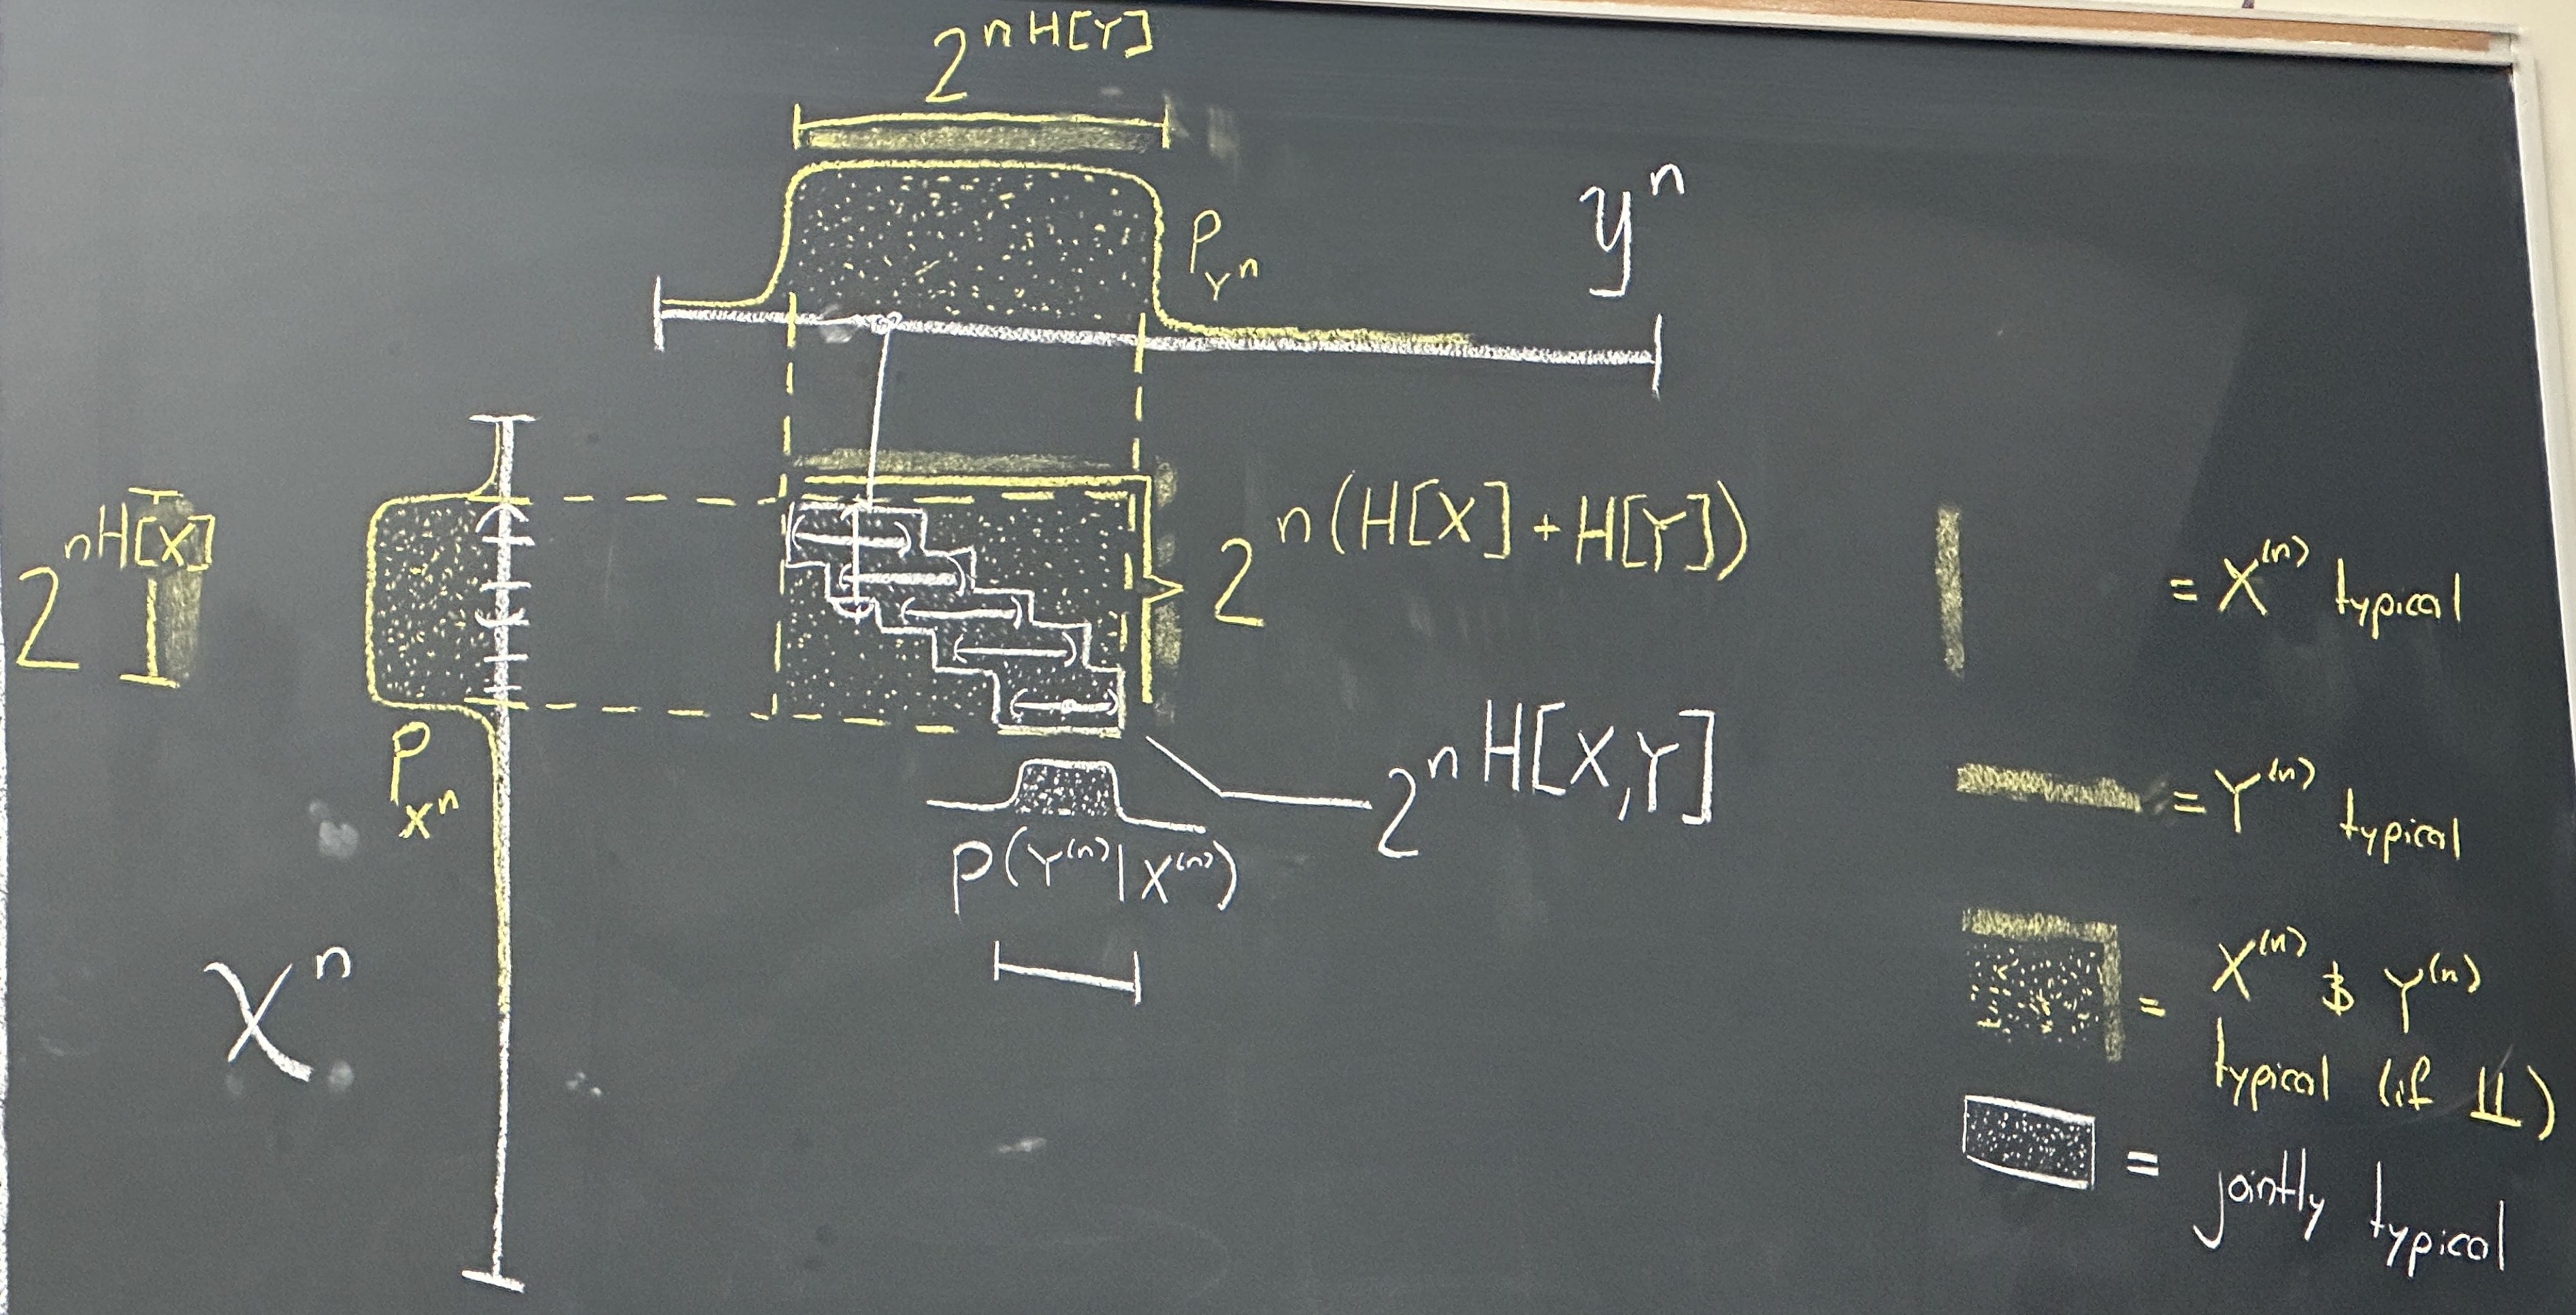 2^{nH[Y]}
P_{Y^n}
𝒴^n
2^{nH[X]}
2^{n(H[X]+H[Y])}
P_{X^n}
2^{nH[X,Y]}
P(Y^{(n)}|X^{(n)})
𝒳^n
= X^{(n)} typical
= Y^{(n)} typical
= X^{(n)} & Y^{(n)}
typical (if ⫫)
= jointly typical